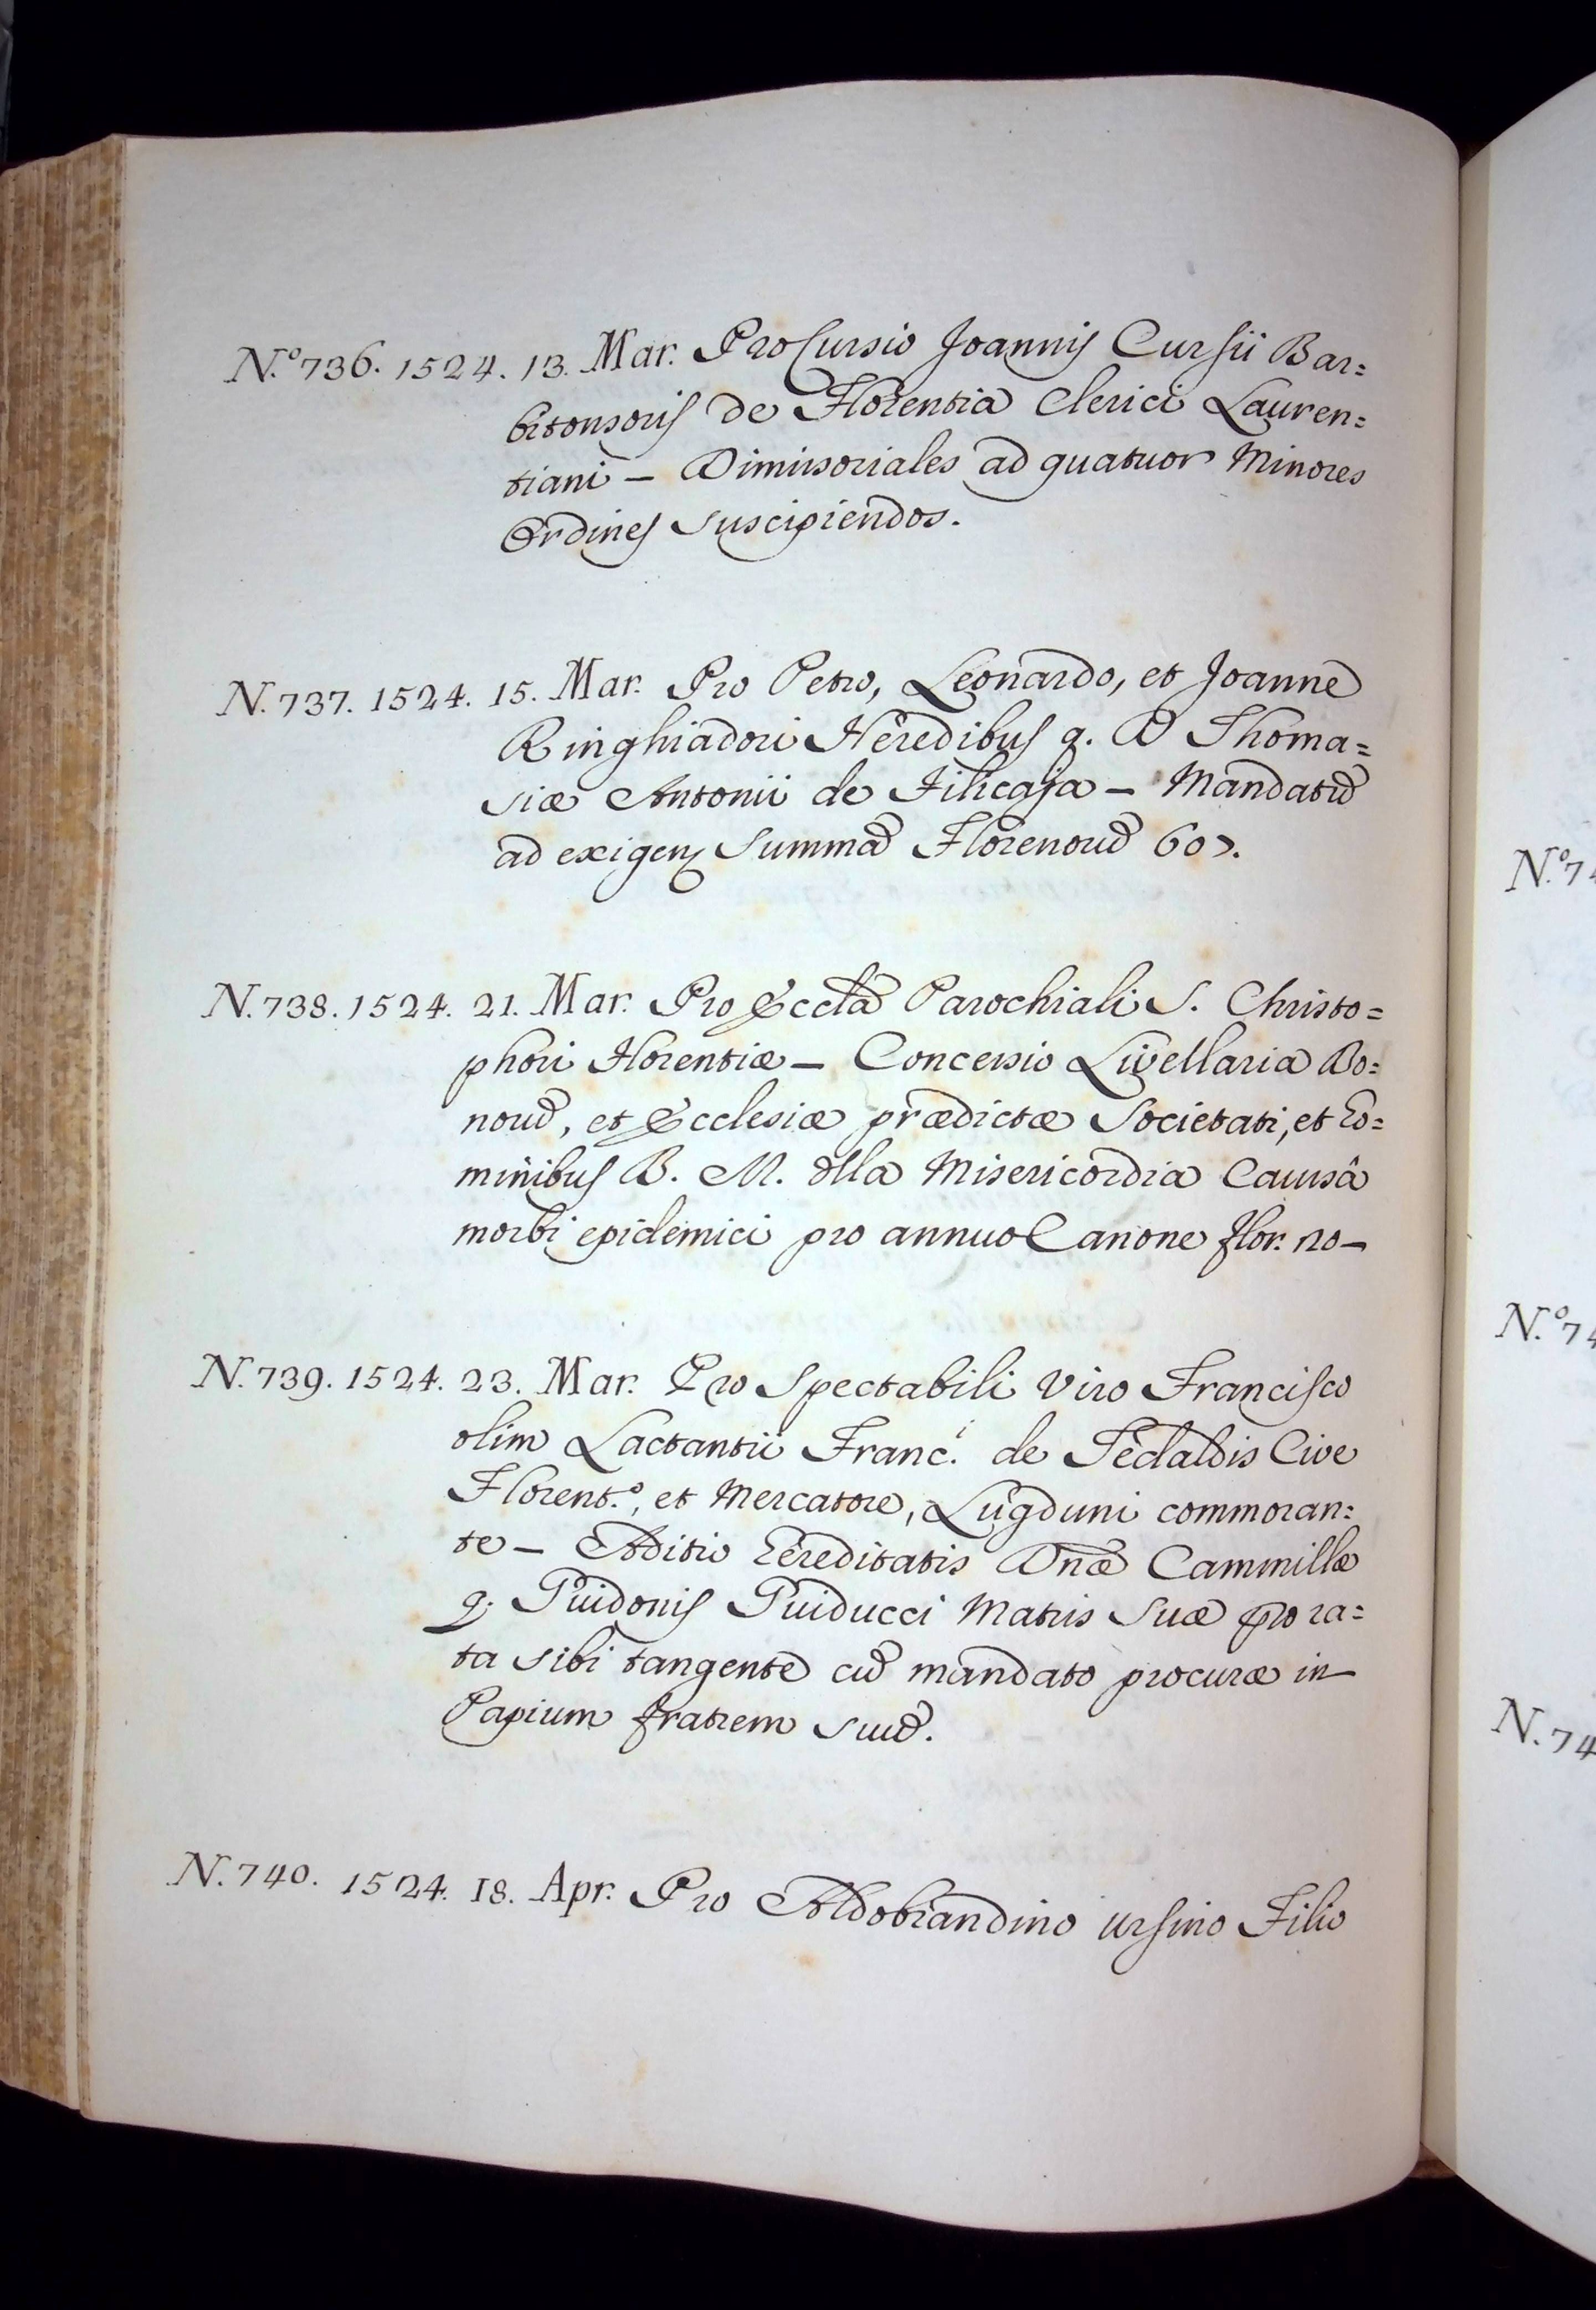 N.º 736. 1524. 13. Mar. Pro Cursio Joannis Cursii Bar=
bitonsoris de Florentia Clerici Lauren=
tiani – Dimissoriales ad quatuor Minores
Ordines suscipiendos.
N. 737. 1524. 15. Mar. Pro Petro, Leonardo, et Joanne
Ringhiadori Heredibus q. D Thoma=
siæ Antonii de Filicaja – Mandatũ
ad exigen Summã Florenorũ 607.
N. 738. 1524. 21. Mar. Pro Ecclã Parochiali S. Christo=
phori Florentiæ – Concessio Livellaria Bo=
norũ, et Ecclesiæ prædictæ Societati, et Ho=
minibus B. M. dlla Misericordia Causâ
morbi epidemici pro annuo Canone flor. 20 –
N. 739. 1524. 23. Mar. Pro Spectabili Viro Francisco
olim Lactantii Franc.i de Tedaldis Cive
Florent.º, et Mercatore, Lugduni commoran=
te – Aditio Hereditatis Dnæ Cammillæ
q. Guidonis Guiducci Matris Suæ pro ra=
ta sibi tangente cũ mandato procuræ in
Papium fratrem suũ.
N. 740. 1524. 18. Apr. Pro Aldobrandino Ursino Filio
N.º 74
N.º 74
N. 74